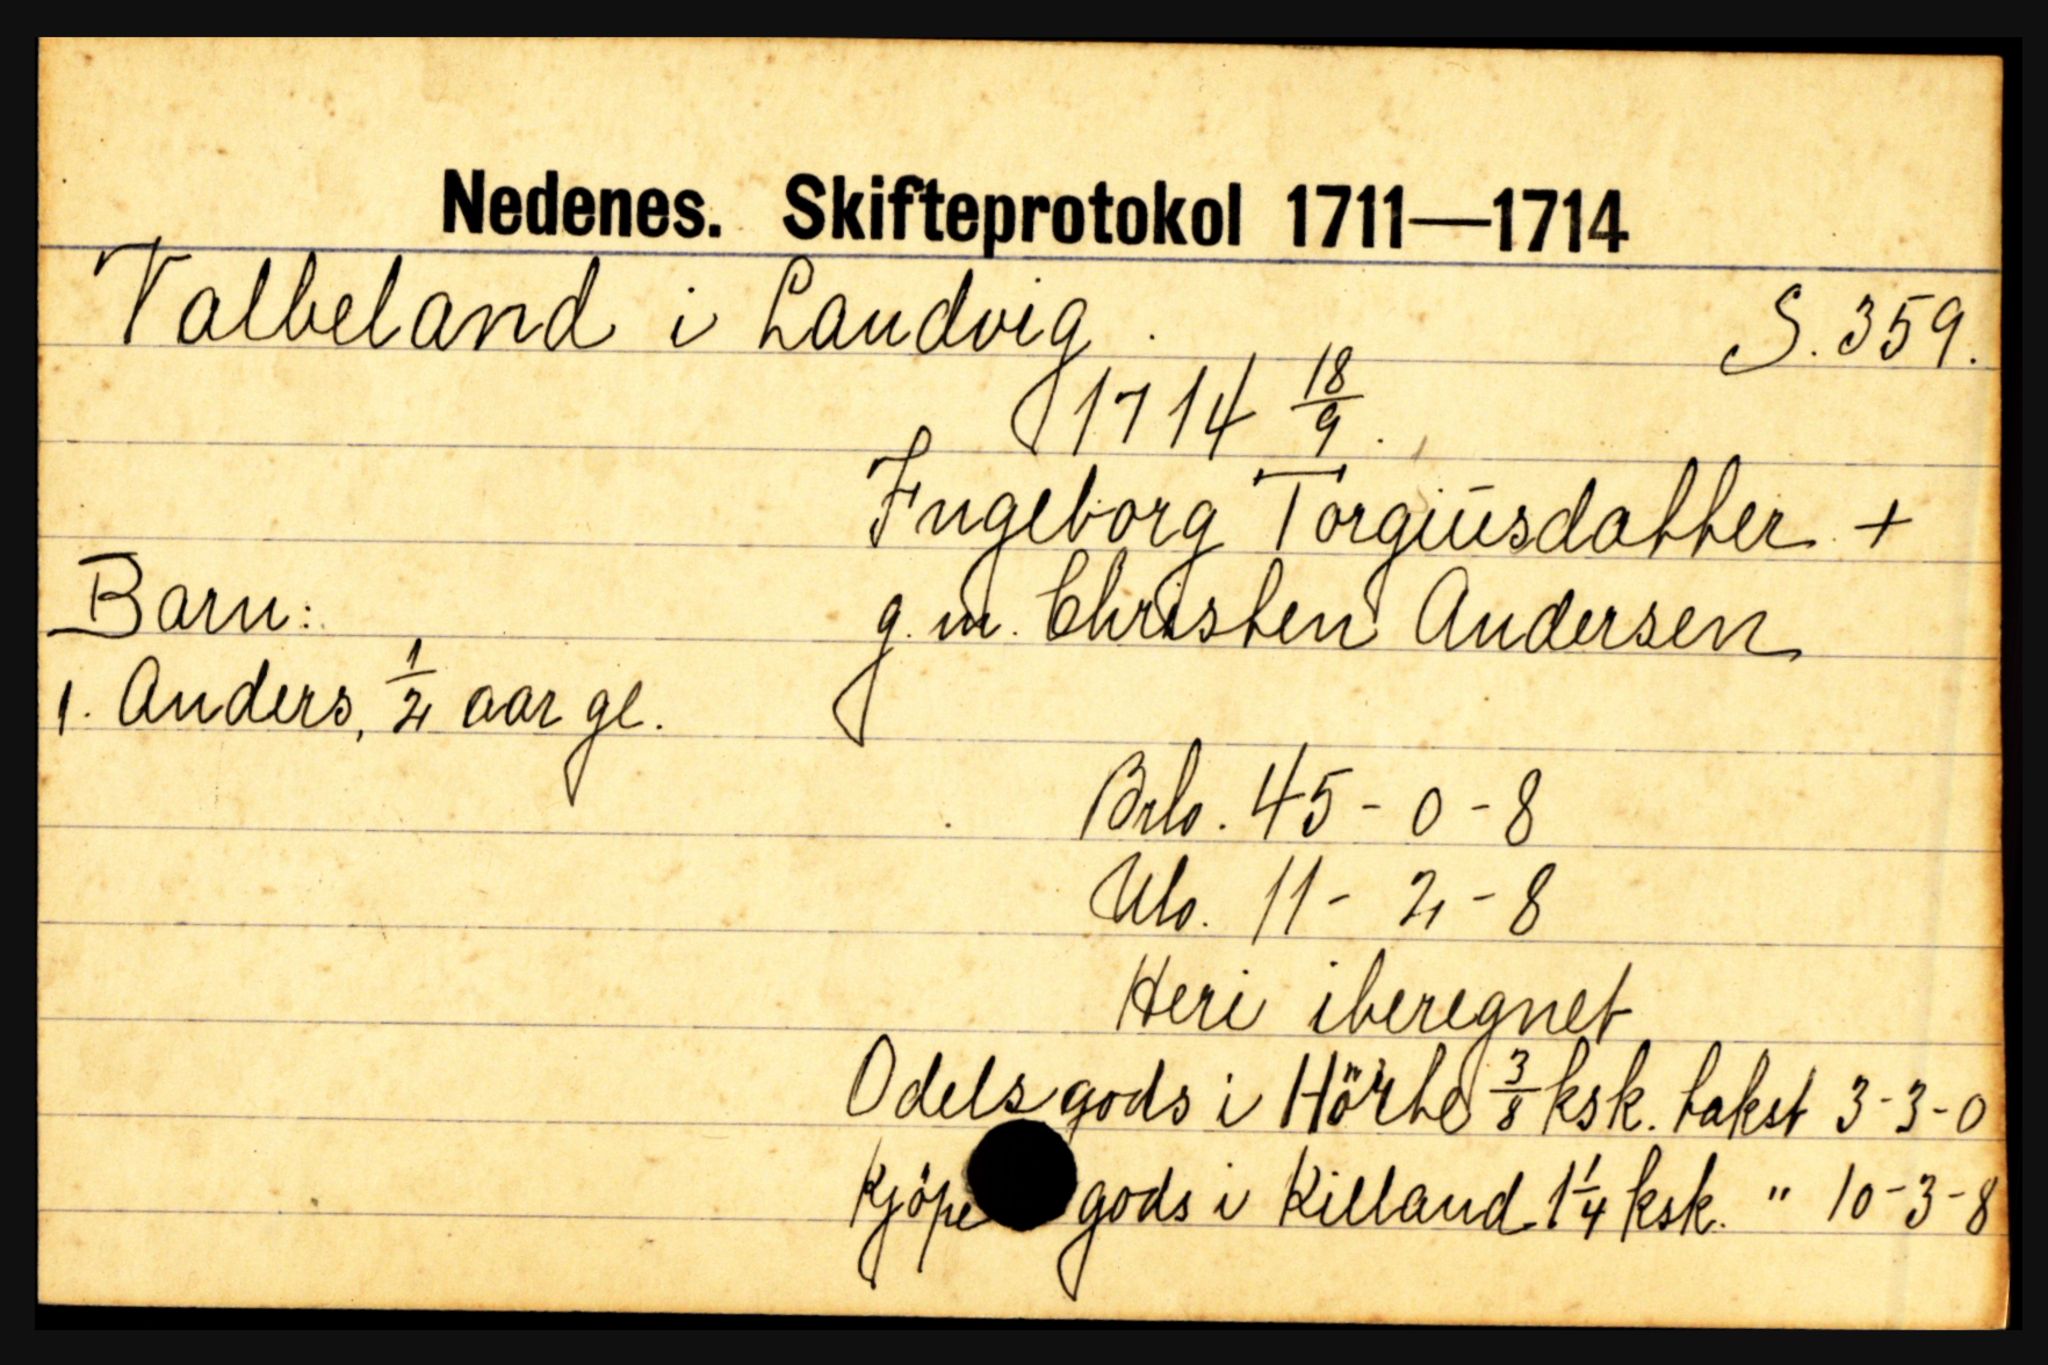 Nedenes. Skifteprotokol 1711—1714
Valbeland i Landvig. S. 359.
1714 18/9.
Ingeborg Torgiusdatter +
g. m. Christen Andersen
Barn:
1. Anders, 1/2 aar gl.
Brlo. 45 - 0 - 8
Ulo. 11 - 2 - 8
Heri iberegnet
Odelsgods i Hörte 3/8 ksk. takst 3-3-0
Kjöpe gods i Killand 1 1/4 ksk. " 10-3-8